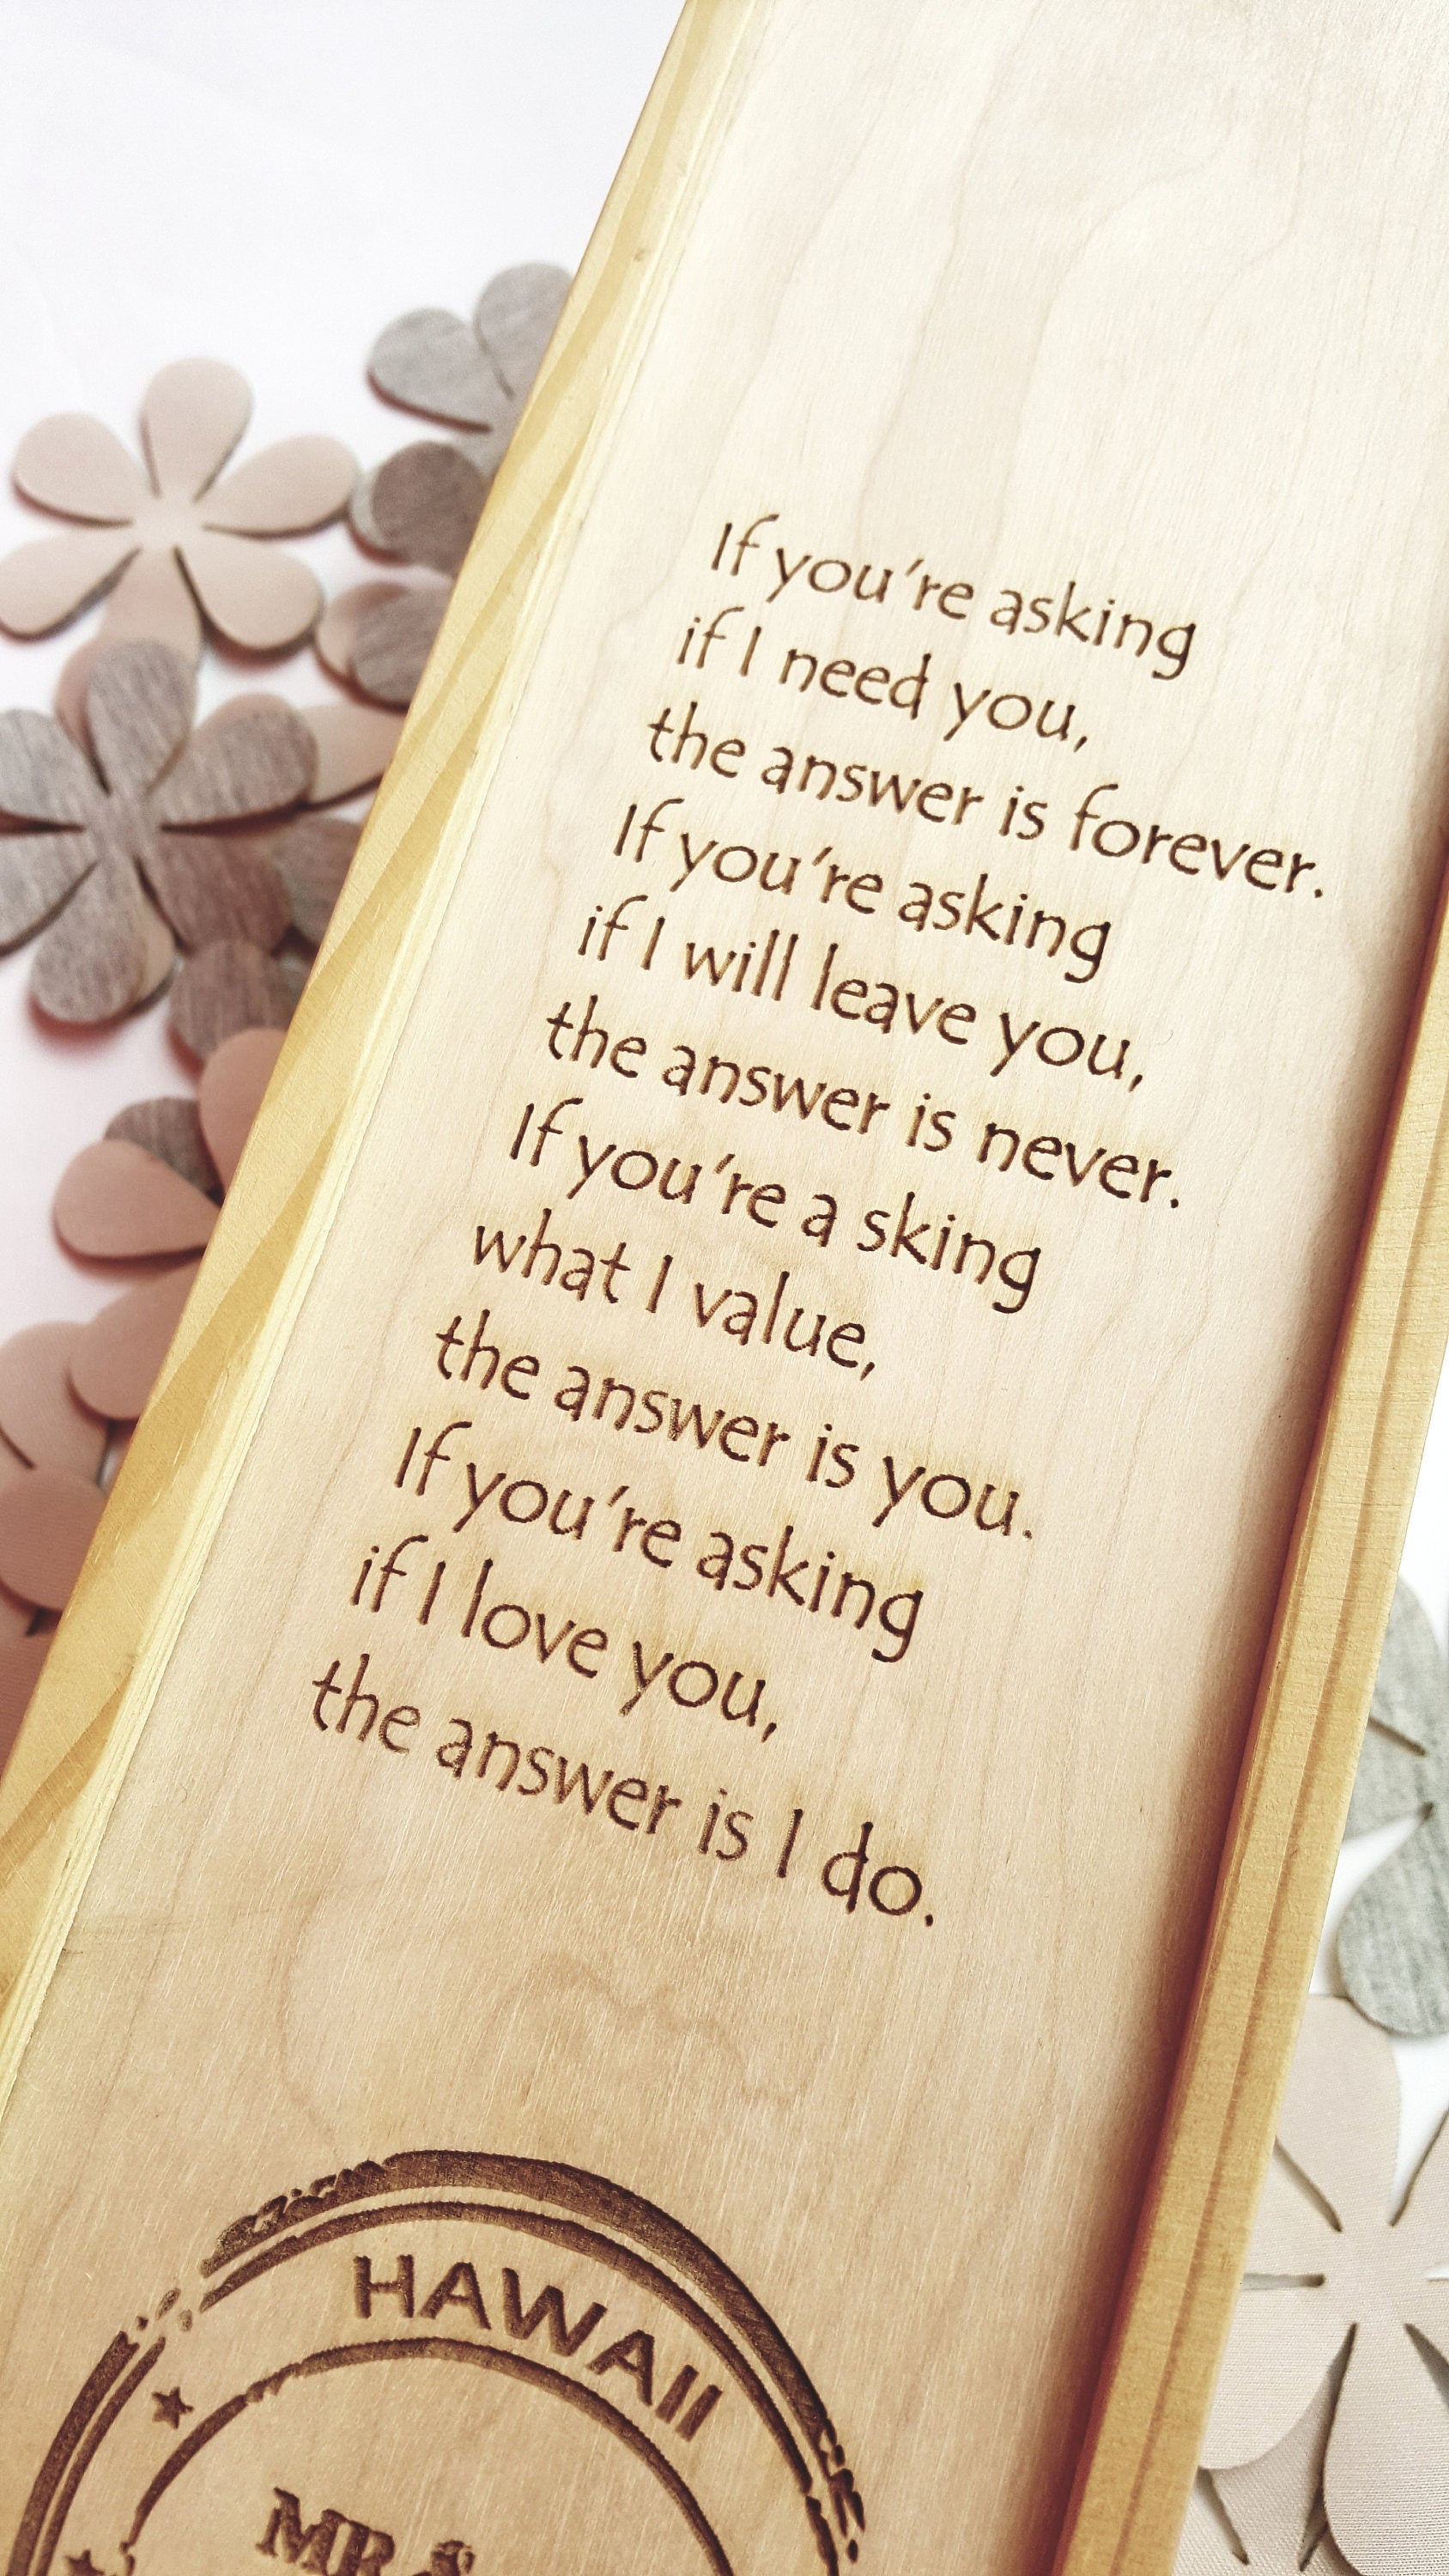 If you're asking
if I need you,
the answer is forever.
If you're asking
if I will leave you,
the answer is never.
If you're a sking
what I value,
the answer is you.
If you're asking
if I love you,
the answer is I do.
HAWAII
MR &